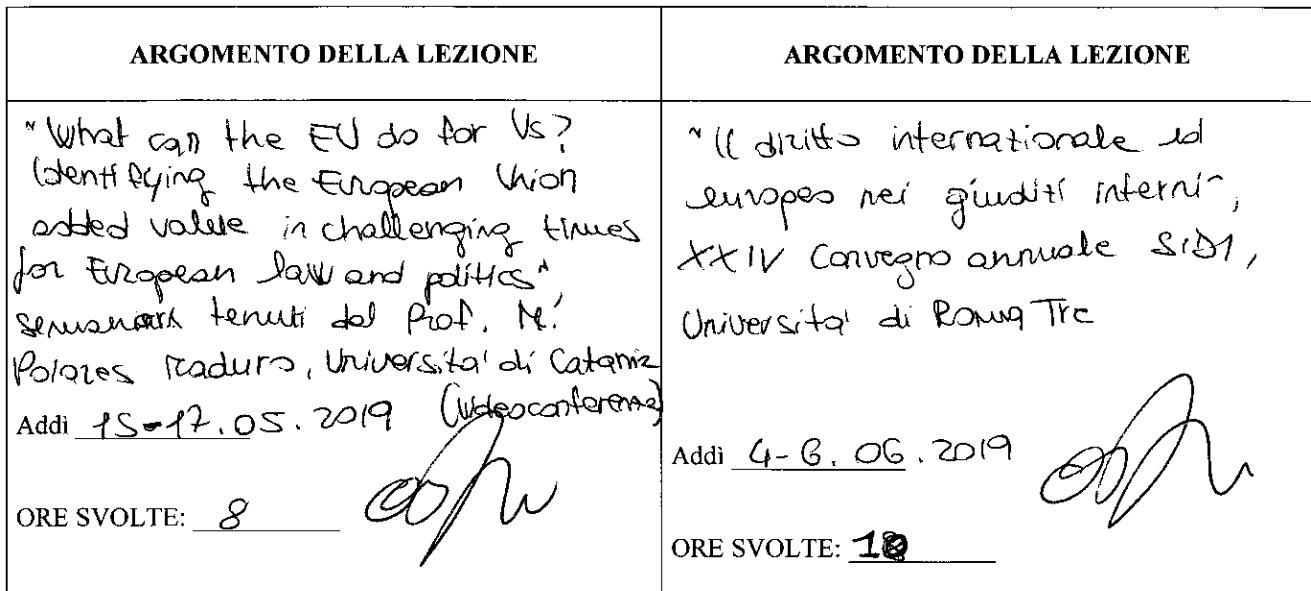 ARGOMENTO DELLA LEZIONE
"What can the EU do for Us?
Identifying the European Union
added value in challenging times
for European law and politics",
seminari tenuti dal Prof. M.
Poiares Maduro, Universita' di Catania
(videoconferenza)
Addì 15-17.05.2019
ORE SVOLTE: 8
ARGOMENTO DELLA LEZIONE
"Il diritto internazionale ed
europeo nei giudizi interni",
XXIV Convegno annuale SIDI,
Universita' di Roma Tre
Addì 4-6.06.2019
ORE SVOLTE: